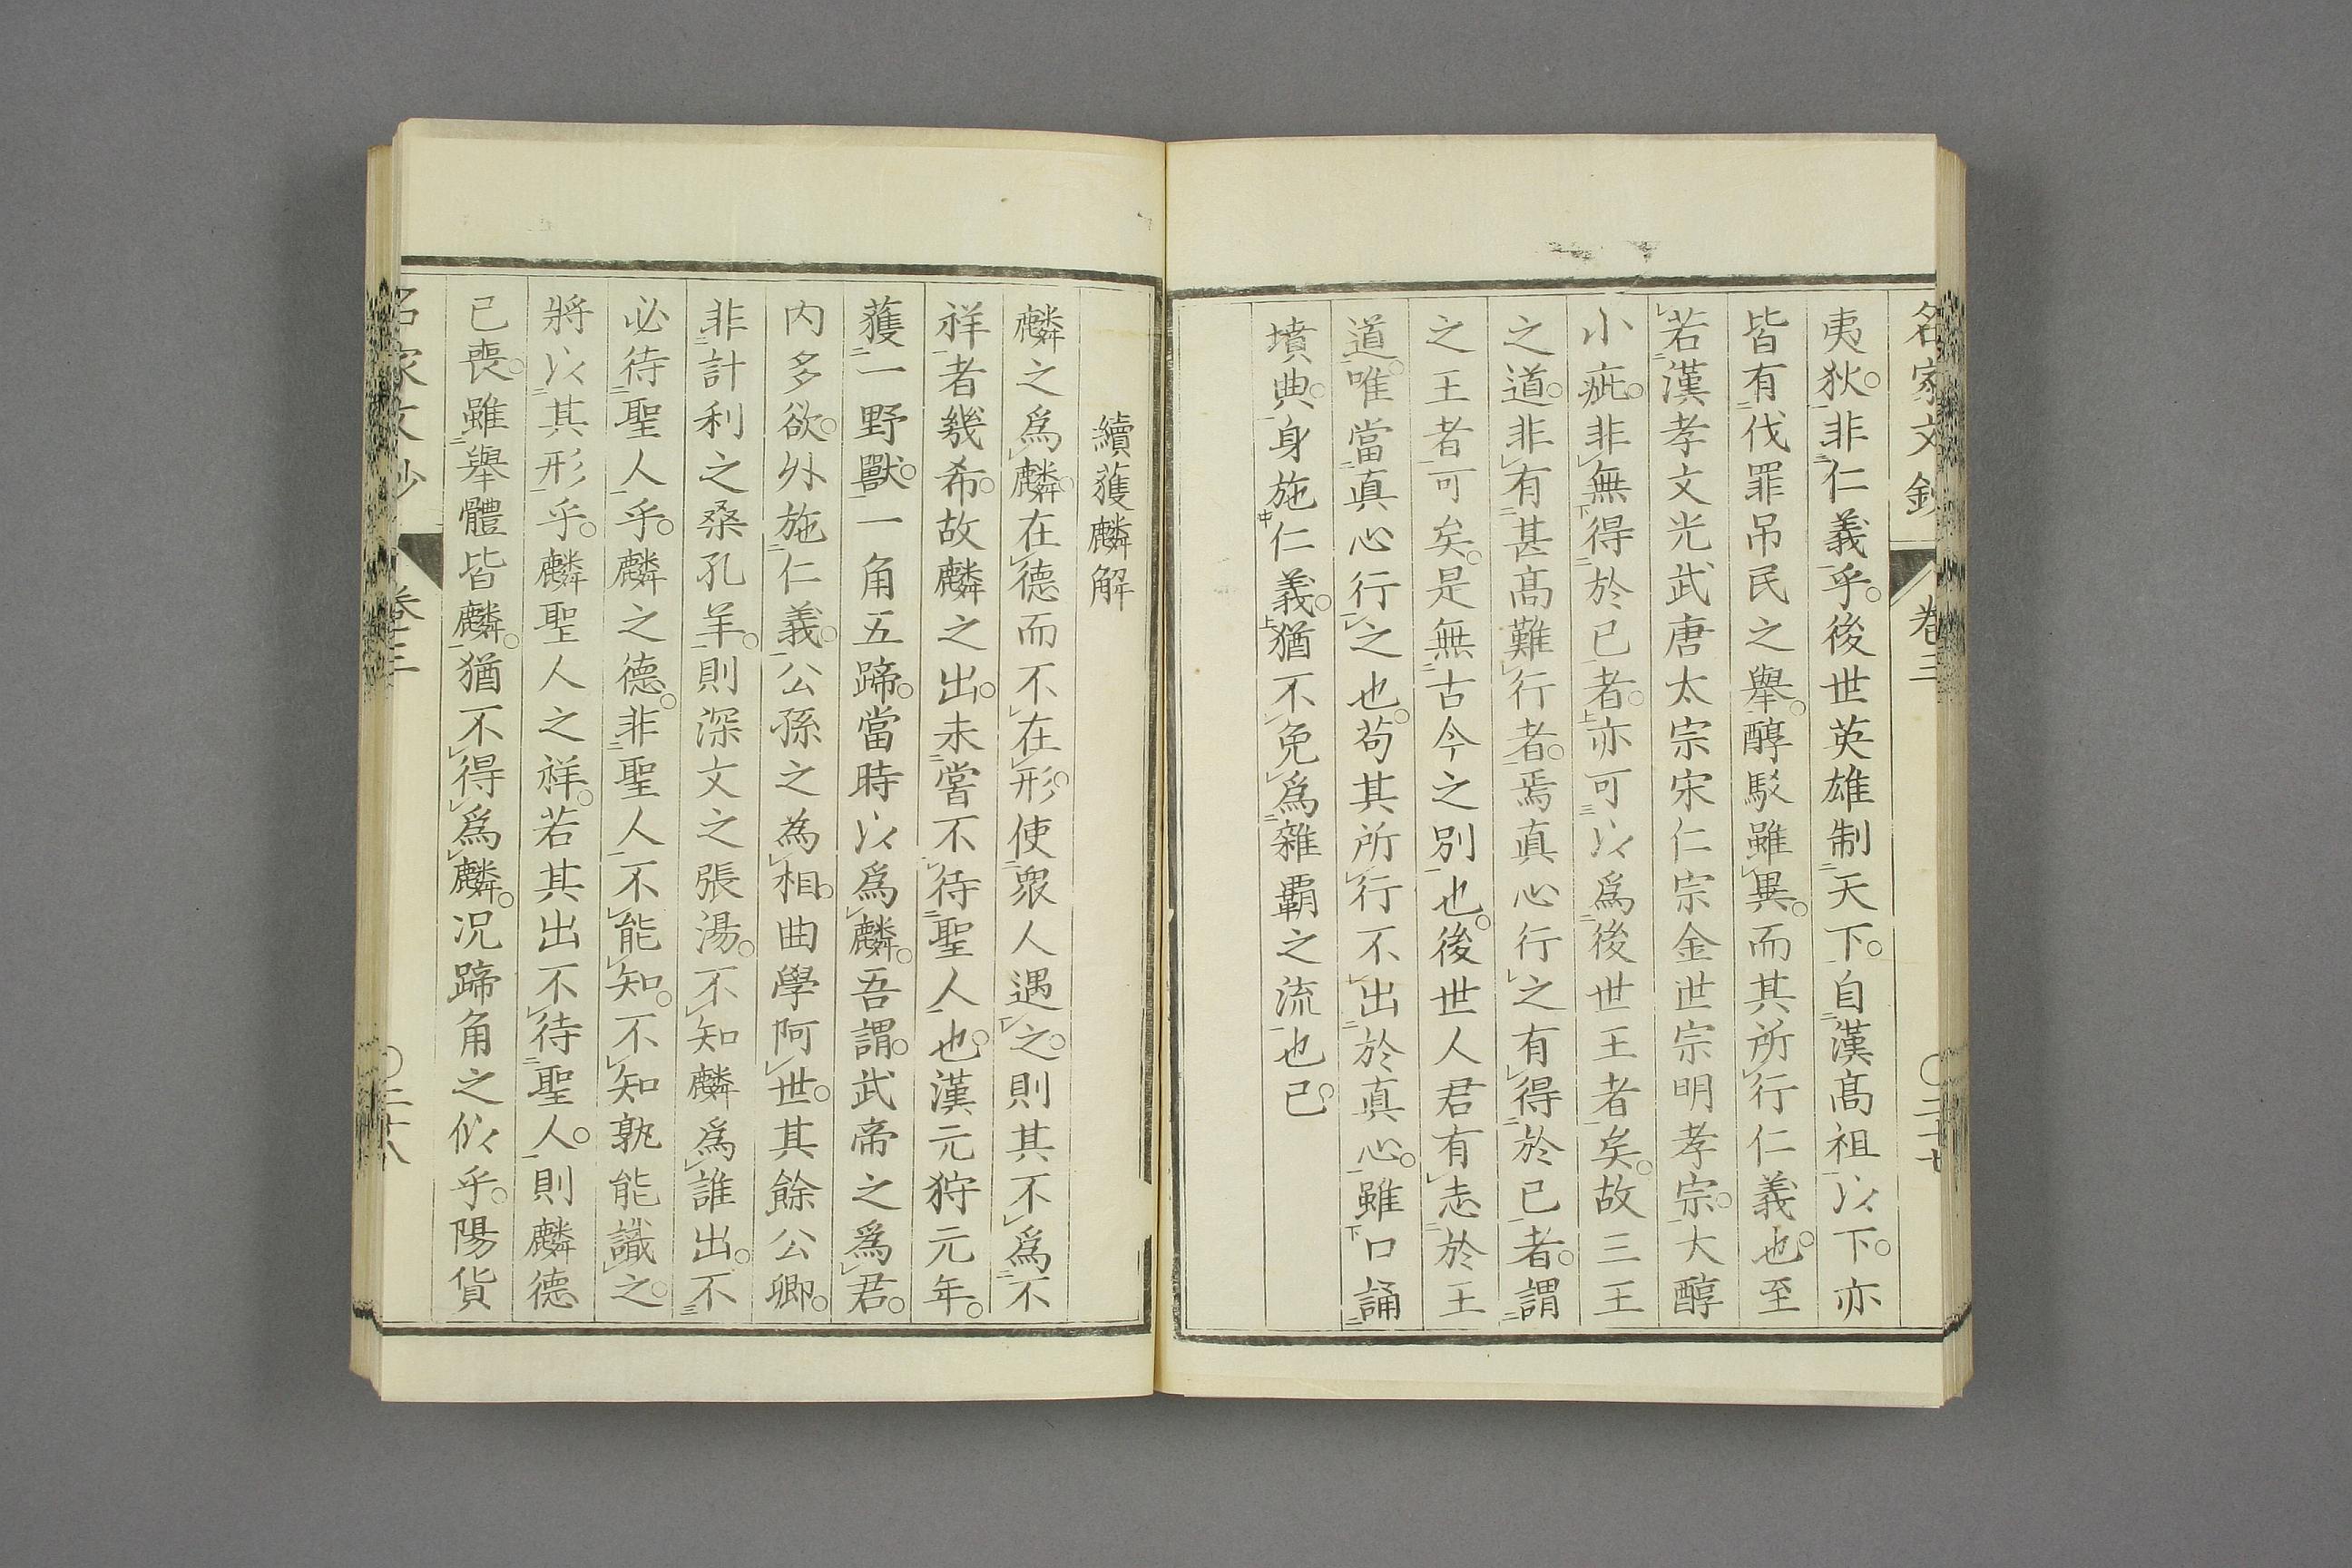 名家文鈔 卷三 〇二十七
夷狄。非仁義乎。後世英雄制天下。自漢高祖以下。亦
皆有伐罪吊民之舉。醇駁雖異。而其所行仁義也。至
若漢孝文光武唐太宗宋仁宗金世宗明孝宗。大醇
小疵。非無得於己者。亦可以爲後世王者矣。故三王
之道。非有甚高難行者。焉真心行之有得於己者。謂
之王者可矣。是無古今之別也。後世人君有志於王
道。唯當真心行之也。苟其所行不出於真心。雖口誦
墳典。身施仁義。猶不免爲雜霸之流也已。
續獲麟解
麟之爲麟。在德而不在形。使衆人遇之。則其不爲不
祥者幾希。故麟之出。未嘗不待聖人也。漢元狩元年。
獲一野獸。一角五蹄。當時以爲麟。吾謂。武帝之爲君。
内多欲。外施仁義。公孫之為相。曲學阿世。其餘公卿。
非計利之桑孔羊。則深文之張湯。不知麟爲誰出。不
必待聖人乎。麟之德。非聖人不能知。不知孰能識之。
將以其形乎。麟聖人之祥。若其出不待聖人。則麟德
已喪。雖舉體皆麟。猶不得爲麟。况蹄角之似乎。陽貨
名家文鈔 卷三 〇二十八